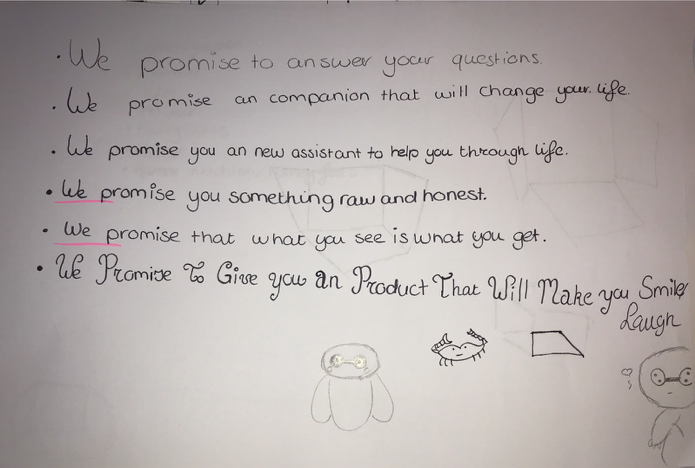 • We promise to answer your questions.
• We promise an companion that will change your life.
• We promise you an new assistant to help you through life.
• We promise you something raw and honest.
• We promise that what you see is what you get.
• We Promise To Give you an Product That Will Make you Smile,
Laugh